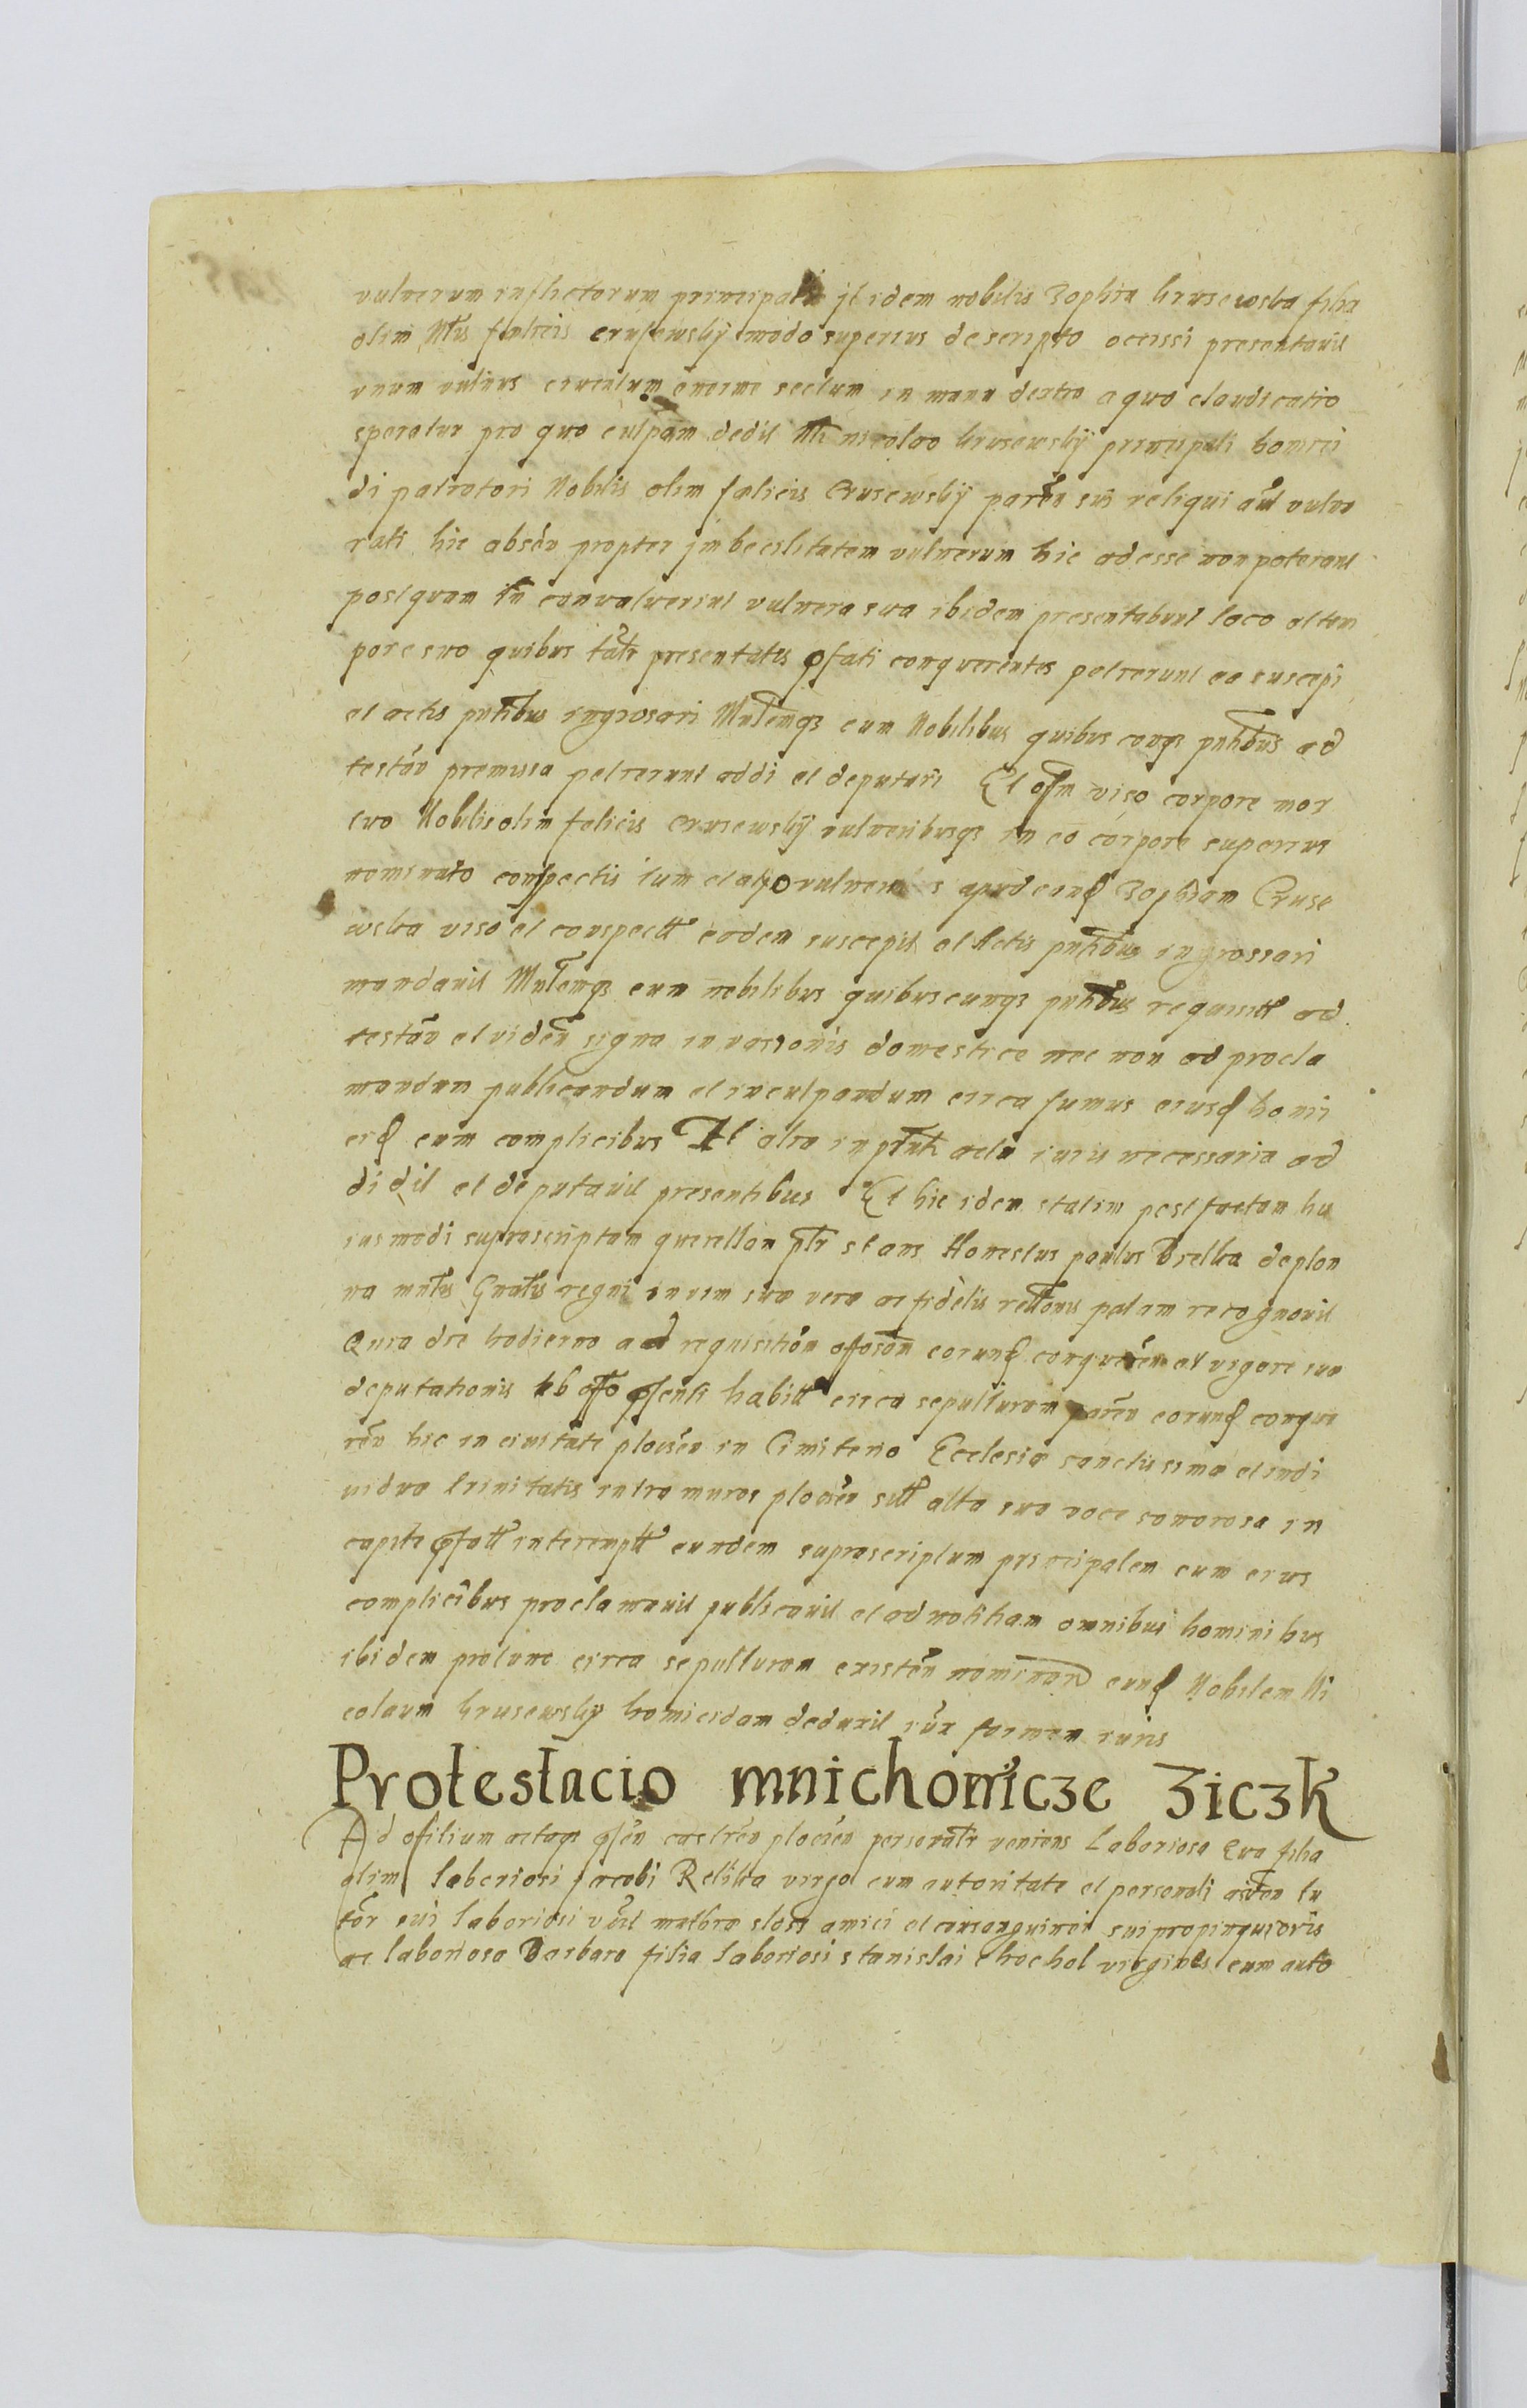 vulnerum inflictorum principali jt idem nobilis Zophia krusewska filia
olim Nlis fœlicis crusewskÿ modo superius descripto occissi presentavit
unum vulnus cruentum enorme sectum in manu dextra a quo claudicatio
speratur pro quo culpam dedit Nli nicolao krusewskÿ principali homici
di patratori Nobilis olim fœlicis Crusewskÿ paren sui reliqui aut vulne
rati hic absen propter jmbecilitatem vulnerum hic adesse non poterant
postquam tn convaluerint vulnera sua ibidem presentabunt loco al tem
pore suo quibus talr presentatis pfati conquerentes petierunt ea suscepi
et actis pntibus ingrosari Mnlemqz cum Nobilibus quibus cunqz pntibus ad
testan premissa petierunt addi et deputari Et offm viso corpore mor
tuo Nobilis olim felicis crusewskÿ vulneribusqz in eo corpore superius
nominato conspectis tum et alio vulneris apud eand Zophiam Cruse
wska viso et conspectt eadem suscepit et Actis pntibus ingrossari
mandavit Mnlemqz cum nobilibus quibuscunqz pntibus requisitt ad
testan et viden signa invasionis domestice nec non ad procla
mandum publicandum et inculpandum circa fumus eiusd homi
cid cum complicibus At alia in pmti actu iuris necessaria ad
didit et deputavit presentibus Et hic idem statim post factam hu
iusmodi suprascriptam querellam plr stans Honestus paulus Brelka de plon
na mnlis Gnalis regni in vim suæ veræ ac fidelis rellonis palam recognovit
Quia die hodierna ad requisition affatam eorund conqueren et vigore sue
deputationis ab offo psenti habitt circa sepulturam paren eorund conque
ren hic in civitate plocen in Cimiterio Ecclesiæ sanctissimæ et indi
viduæ trinitatis intra muros plocen sitt alta sua voce sonorosa in
capite pfatt interemptt eundem suprascriptum principalem cum eius
complicibus proclamavit publicavit et ad notitiam omnibus hominibus
ibidem pro tunc circa sepulturam existen nominand eund Nobilem Ni
colaum krusewsky homicidam deduxit iux formam iuris
Protestacio mnichowicze Ziczk
Ad offitium actaqz psen castren plocen personalr veniens Laboriosa Eva filia
olim laboriosi jacobi Relika virgo cum autoritate et personali assten tu
tor sui laboriosi mathiæ slosz amici et consanguinei sui propinquioris
ac laboriosa Barbara filia laboriosi stanislai chochol virgines cum auto